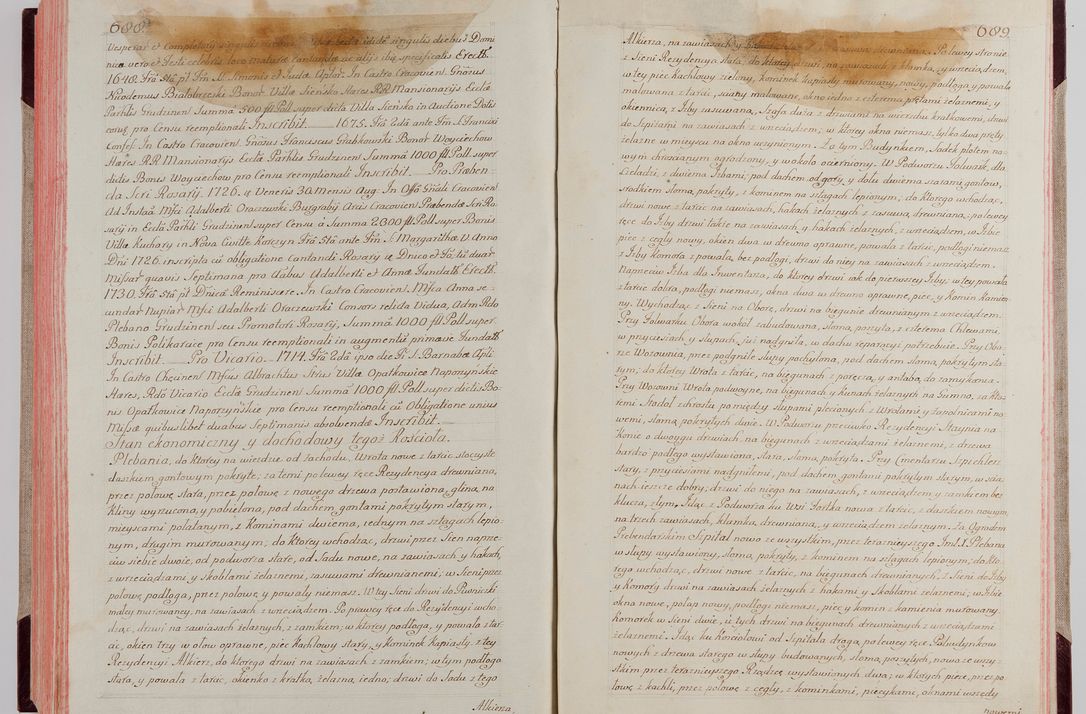 688
Vesperas et Completorij singulis diebus Domi
nica vero et Festi celebris loco maturæ Cantandæ ac alijs ibi specificatis Erectæ
1648. Fra 5ta pt Frn SS. Simonis et Judæ Aplor: In Castro Cracovien: Gnosus
Nicodemus Białobrzeski Bonor Villæ Sieńsko Hæres RR Mansionarijs Ecclæ
Parhlis Grudzinen Summã 500 fll Poll super dicta Villa Sieńsko in Auctione Dotis
eorum pro Censu reemptionali Inscribit. 1675. Fra 2da ante Frn S. Francisci
Confes: In Castro Cracovien: Gnosus Franciscus Grabkowski Bonor Woyciechow
Hæres RR Mansionarijs Ecclæ Parhlis Grudzinen Summã 1000 fll Poll super
dictis Bonis Woyciechow pro Censu reemptionali Inscribit. Pro Præben-
da Scri Rosarij. 1726. is Veneris 30 Mensis Aug: In Offo Gnãli Cracovien
Ad Instaã Mfci Adalberti Oraczewski Burgrabij Arcis Cracovien Præbendæ Scri Ro-
sarij in Ecclã Parhli Grudzinen super Censu à Summã 2800 fll Poll super Bonis
Villæ Kuchary in Nova Civitte Korczyn Fra 5ta ante Frn S. Margarithæ V. Anno
Dni 1726. inscripta cũ obligatione Cantandi Rosarij in Dnica et Fã tũ duar
Missar quavis Septimana pro Aãbus Adalberti et Annæ Fundath Erecth.
1730. Fra 5ta pt Dnicã Reminiscere. In Castro Cracovien: Mfca Anna se-
cundar Nuptiar Mfci Adalberti Oraczewski Consors relicta Vidua, Adm Rdo
Plebano Grudzinen seu Promotori Rosarij, Summã 1000 fll Poll super
Bonis Polikarcice pro Censu reemptionali in augmentũ primævæ Fundath
Inscribit. Pro Vicario. 1714. Fra 2da ipso die F. S. Barnabæ Apli
In Castro Chęcinen Mfcus Albrachtus Stus Villæ Opatkowice Naporzyńskie
Hæres, Rdo Vicario Ecclæ Grudzinen Summã 1000 fll Poll super dictis Bo-
nis Opatkowice Naporzyńskie pro Censu reemptionali cũ Obligatione unius
Missæ quibuslibet duabus Septimanis absolvendæ Inscribit.
Stan ekonomiczny y dochodowy tegoż Kościoła.
Plebania, do ktorey na wieździe od Zachodu, Wrota nowe z tarcic stoczyste
daszkiem gontowym pokryte; za temi po lewey ręce Rezydencya drewniana,
przez połowę stara, przez połowę z nowego drzewa postawiona, gliną na
kliny wyrzucona, y pobielona, pod dachem gontami pokrytym starym,
mieyscami połatanym, z Kominami dwiema, iednym na sztagach lepio-
nym, drugim murowanym; do ktorey wchodząc, drzwi przez Sien naprze-
ciw siebie dwoie, od podworza stare, od Sadu nowe, na zawiasach y hakach,
z wrzeciądzami y Skoblami żelaznemi, zasuwami drewnianemi; w Sieni przez
połowę podłoga, przez połowę y powały niemasz. W tey Sieni drzwi do Piwniczki
małey murowaney, na zawiasach z wrzeciądzem. Po prawey ręce do Rezydencyi wcho-
dząc, drzwi na zawiasach żelaznych, z zamkiem; w ktorey podłoga, y powała z tar
cic, okien trzy w ołow oprawne, piec Kachlowy stary, y Kominek Kapiasty. z tey
Rezydencyi Alkierz, do ktorego drzwi na zawiasach z zamkiem; w tym podłoga
stara, y powała z tarcic, okienko z kratką żelazną, iedno, drzwi do Sadu z tego
Alkierza
689
Alkierza, na zawiasach y drewnianą. Po lewey stronie
z Sieni Rezydencya stara, do ktorey drzwi, na zawiasach, z klamką, y wrzeciądzem,
w tey piec kachlowy zielony, kominek kapiasty murowany, nowy, podłoga y powała
malowana z tarcic, ściany malowane, okno iedno z czterema prętami żelaznemi, y
okiennicą, z Izby zasuwaną, Szafa duża z drzwiami na wierzchu kratkowemi, drzwi
do Spiżarni na zawiasach z wrzeciądzem; w ktorey okna niemasz, tylko dwa pręty
żelazne w mieyscu na okno wyznionym. Za tym Budynkiem, Sadek płotem no-
wym chrościanym ogrodzony, y wokoło ocierniony. W Podworzu Folwark, dla
Czeladzi, z dwiema Izbami; pod dachem od gory, y dołu dwiema szarami gontow,
srodkiem słomą, pokryty, z kominem na sztagach lepionym; do ktorego wchodząc,
drzwi nowe z tarcic na zawiasach, hakach żelaznych z zasuwą, drewnianą; po lewey
ręce do Izby drzwi także na zawiasach y hakach żelaznych, z wrzeciądzem, w Izbie
piec z cegły nowy, okien dwa w drewno oprawne, powała z tarcic, podłogi niemasz,
z Izby komora z powałą, bez podłogi, drzwi do niey na zawiasach z wrzeciądzem.
Naprzeciw Izba dla Inwentarza, do ktorey drzwi iak do pierwszey Izby; w tey powała
z tarcic dobra, podłogi niemasz, okna dwa w drzewno oprawne, piec, y komin Kamien-
ny. Wychodząc z Sieni na Oborę, drzwi na biegunie drewnianym z wrzeciądzem.
Przy Folwarku Obora wokoł zabudowana, słomą, poszyta, z czterema Chlewami,
w przyciesiach y słupach, iuż nadgniła, w dachu reparacyi potrzebuie. Przy Obo-
rze Wozownia, przez podgniłe słupy pochylona, pod dachem słomą pokrytym sta-
rym; do ktorey Wrota z tarcic, na biegunach z poręczą, y antabą, do zamykania.
Przy Wozowni Wrota podwoyne, na biegunach y kunach żelaznych na Gumno, za kto-
remi Stodoł z chrostu pomiędzy słupami plecionych z Wrotami y zapolnicami no-
wemi, słomą pokrytych dwie. W Podworzu przeciwko Rezydencyi Staynia na
Konie o dwoygu drzwiach na biegunach z wrzeciądzami żelaznemi, z drzewa
bardzo podłego wystawiona, stara, słomą pokryta. Przy Cmentarzu Spichlerz
stary, z przyciesiami nadgniłemi, pod dachem gontami pokrytym starym, w ścia-
nach ieszcze dobry, drzwi do niego na zawiasach, z wrzeciądzem y zamkiem bez
klucza, z tym, Idąc z Podworza ku Wsi Fortka nowa z tarcic, z daszkiem nowym
na trzech zawiasach, klamką drewnianą, y wrzeciądzem żelaznym. Za Ogrodem
Prebendarskim Szpital nowo ze wszystkim, przez teraznieyszego Imć. X. Plebana
w słupy wystawiony, słomą, pokryty, z kominem na sztagach lepionym; do kto-
rego wchodząc, drzwi nowe z tarcic, na biegunach drewnianych, z Sieni do Izby
y Komory drzwi na zawiasach żelaznych z hakami y Skoblami żelaznemi; w Izbie
okna nowe, pułap nowy, podłogi niemasz, piec y komin z kamienia murowany.
Komorek w Sieni dwie, u tych drzwi na biegunach drewnianych z wrzeciądzami
żelaznemi. Idąc ku Kościołowi od Szpitala drogą, po lewey ręce Pobudynkow
nowych z drzewa starego w słupy budowanych, słomą poszytych, nowo ze wszy-
stkim przez teraznieyszego Rządzcę wystawionych dwa; w ktorych piece, przez po-
łowę z kachli, przez połowę z cegły, z kominkami, piecykami, oknami wszędy
nowemi